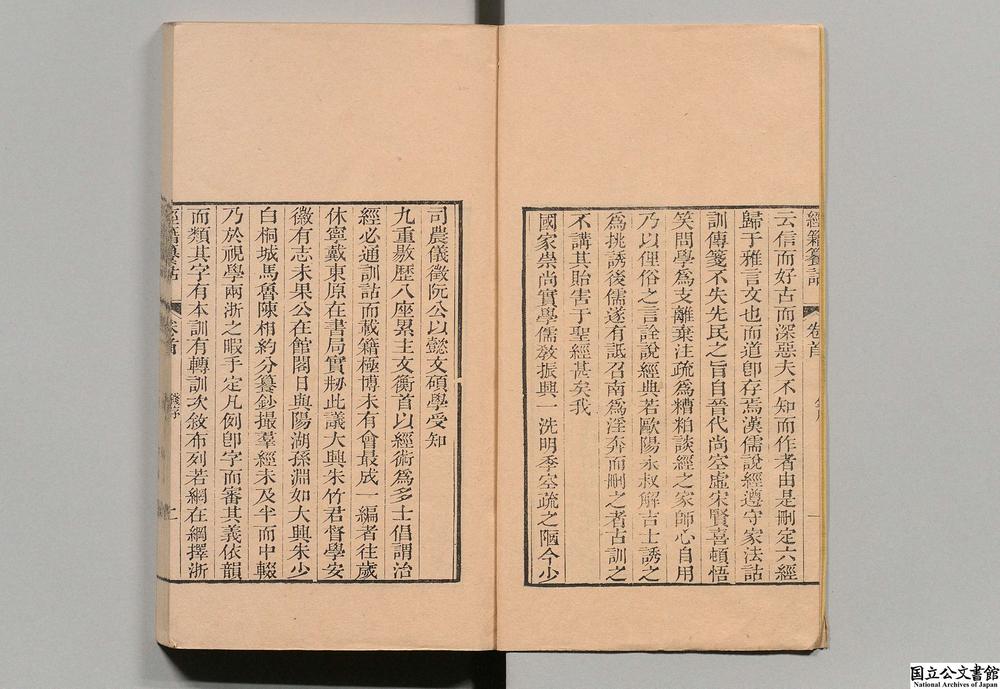 經籍籑詁 卷首 一
云信而好古而深惡夫不知而作者由是刪定六經
歸于雅言文也而道卽存焉漢儒說經遵守家法詁
訓傳箋不失先民之旨自晉代尚空虛宋賢喜頓悟
笑問學爲支離棄注疏爲糟粕談經之家師心自用
乃以俚俗之言詮說經典若歐陽永叔解吉士誘之
爲挑誘後儒遂有詆召南爲淫奔而刪之者古訓之
不講其貽害于聖經甚矣我
國家崇尚實學儒敎振興一洗明季空疏之陋今少
司農儀徵阮公以懿文碩學受知
九重敭歷八座累主文衡首以經術爲多士倡謂治
經必通訓詁而載籍極博未有會最成一編者往歲
休寧戴東原在書局實剏此議大興朱竹君督學安
徽有志未果公在館閣日與陽湖孫淵如大興朱少
白桐城馬魯陳相約分籑鈔撮羣經未及半而中輟
乃於視學兩浙之暇手定凡例卽字而審其義依韻
而類其字有本訓有轉訓次敘布列若網在綱擇浙
經籍籑詁 卷首 錢序
国立公文書館
National Archives of Japan